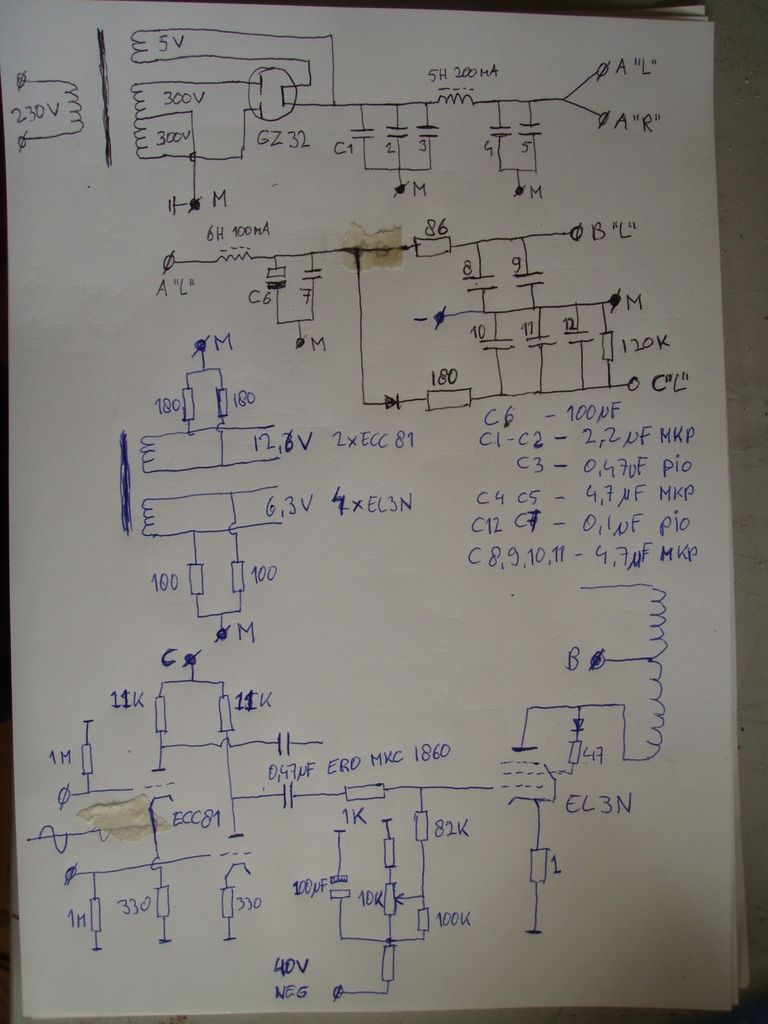 5V
5H 200MA
A "L"
230V
300V
300V
GZ32
C1
2
3
4
5
A "R"
M
M
M
6H 100MA
86
B "L"
A "L"
C6
7
8
9
M
M
-
10
11
12
120K
M
180
C"L"
180
180
12,6V 2xECC81
6,3V 4xEL3N
100
100
M
C6 - 100µF
C1-C2 - 2,2µF MKP
C3 - 0,47µF pio
C4 C5 - 4,7µF MKP
C12 C7 - 0,1µF pio
C8,9,10,11 - 4,7µF MKP
C
B
11K
11K
1M
0,47µF ERO MKC 1860
47
ECC81
1K
EL3N
82K
1M
330
330
100µF
10K
100K
1
40V
NEG